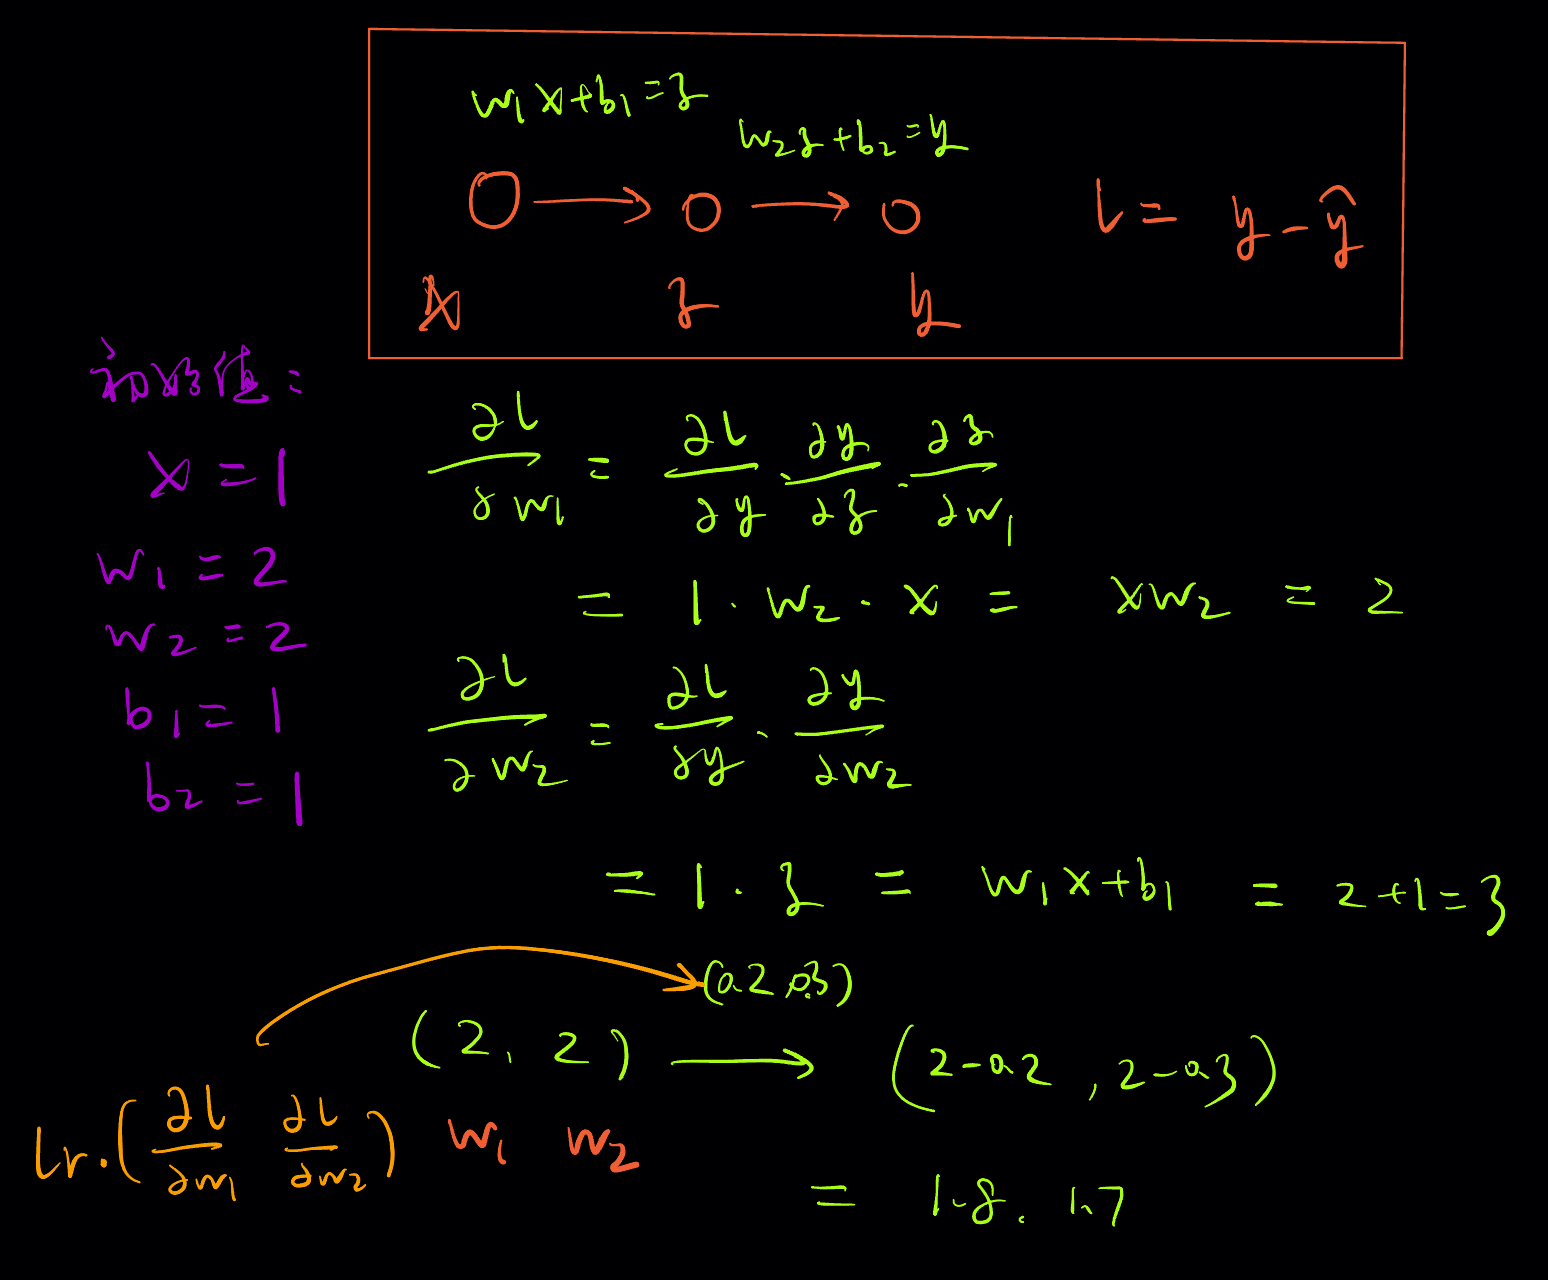 w₁x+b₁=z
w₂z+b₂=y
l = y - ŷ
x z y
初始值:
x = 1
w₁ = 2
w₂ = 2
b₁ = 1
b₂ = 1
∂l/∂w₁ = ∂l/∂y · ∂y/∂z · ∂z/∂w₁
= 1 · w₂ · x = xw₂ = 2
∂l/∂w₂ = ∂l/∂y · ∂y/∂w₂
= 1 · z = w₁x+b₁ = 2+1=3
(0.2 0.3)
(2, 2) → (2-0.2, 2-0.3)
lr·(∂l/∂w₁ ∂l/∂w₂) w₁ w₂
= 1.8, 1.7